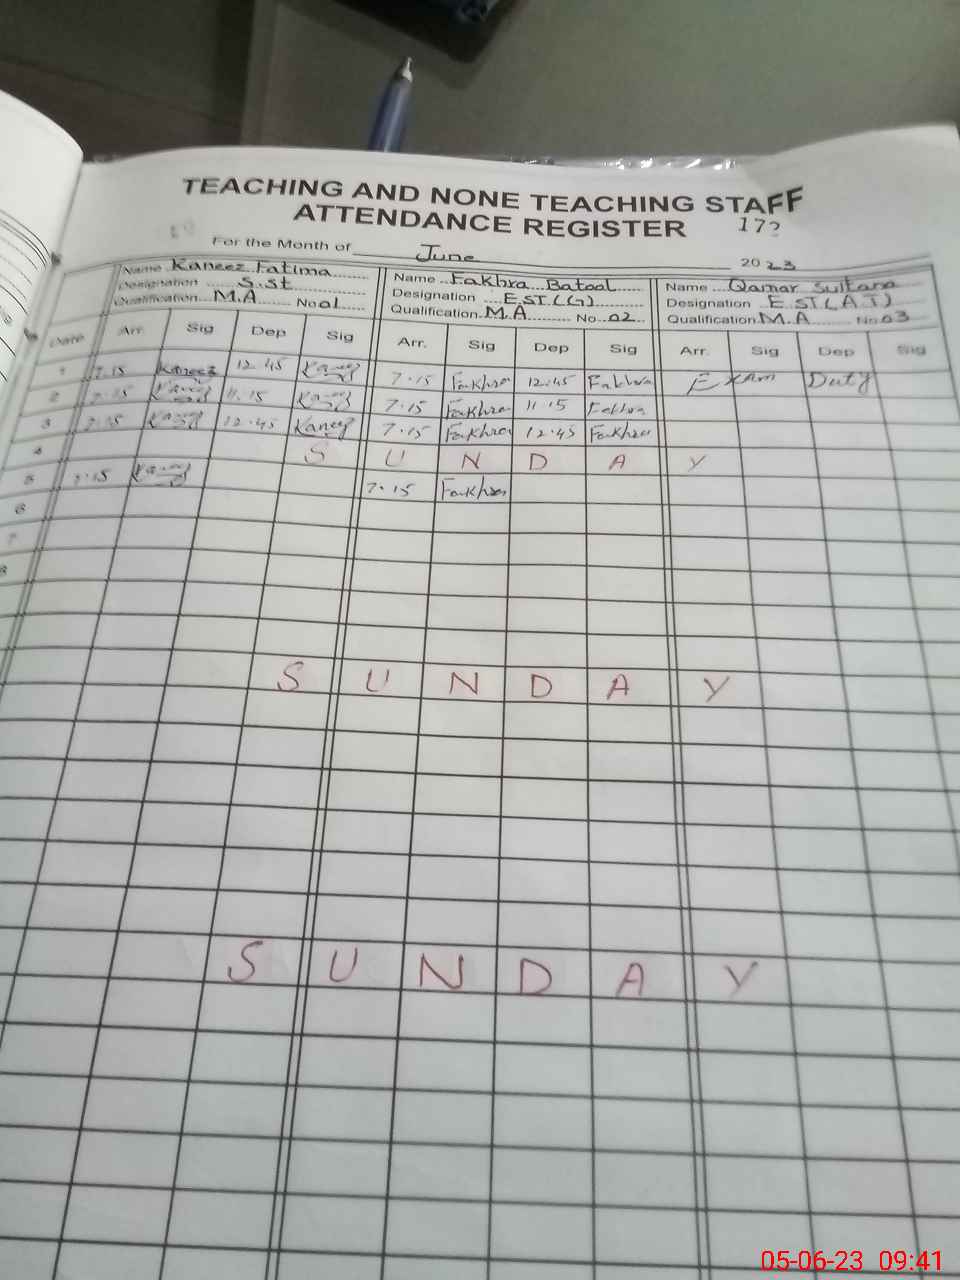 TEACHING AND NONE TEACHING STAFF
ATTENDANCE REGISTER 172
For the Month of June 2023
Name Kaneez Fatima Name Fakhra Batool Name Qamar Sultana
Designation S.St Designation E.ST.(G) Designation E.ST(A.T)
Qualification M.A No 01 Qualification M.A No 02 Qualification M.A No 03
Date Arr. Sig Dep Sig Arr. Sig Dep Sig Arr. Sig Dep Sig
1 7.15 Kaneez 12.45 Kaneez 7.15 Fakhra 12.45 Fakhra Exam Duty
2 7.15 Kaneez 11.15 Kaneez 7.15 Fakhra 11.15 Fakhra
3 7.15 Kaneez 12.45 Kaneez 7.15 Fakhra 12.45 Fakhra
4 S U N D A Y
5 7.15 Kaneez 7.15 Fakhra
6
7
8
S U N D A Y
S U N D A Y
05-06-23 09:41